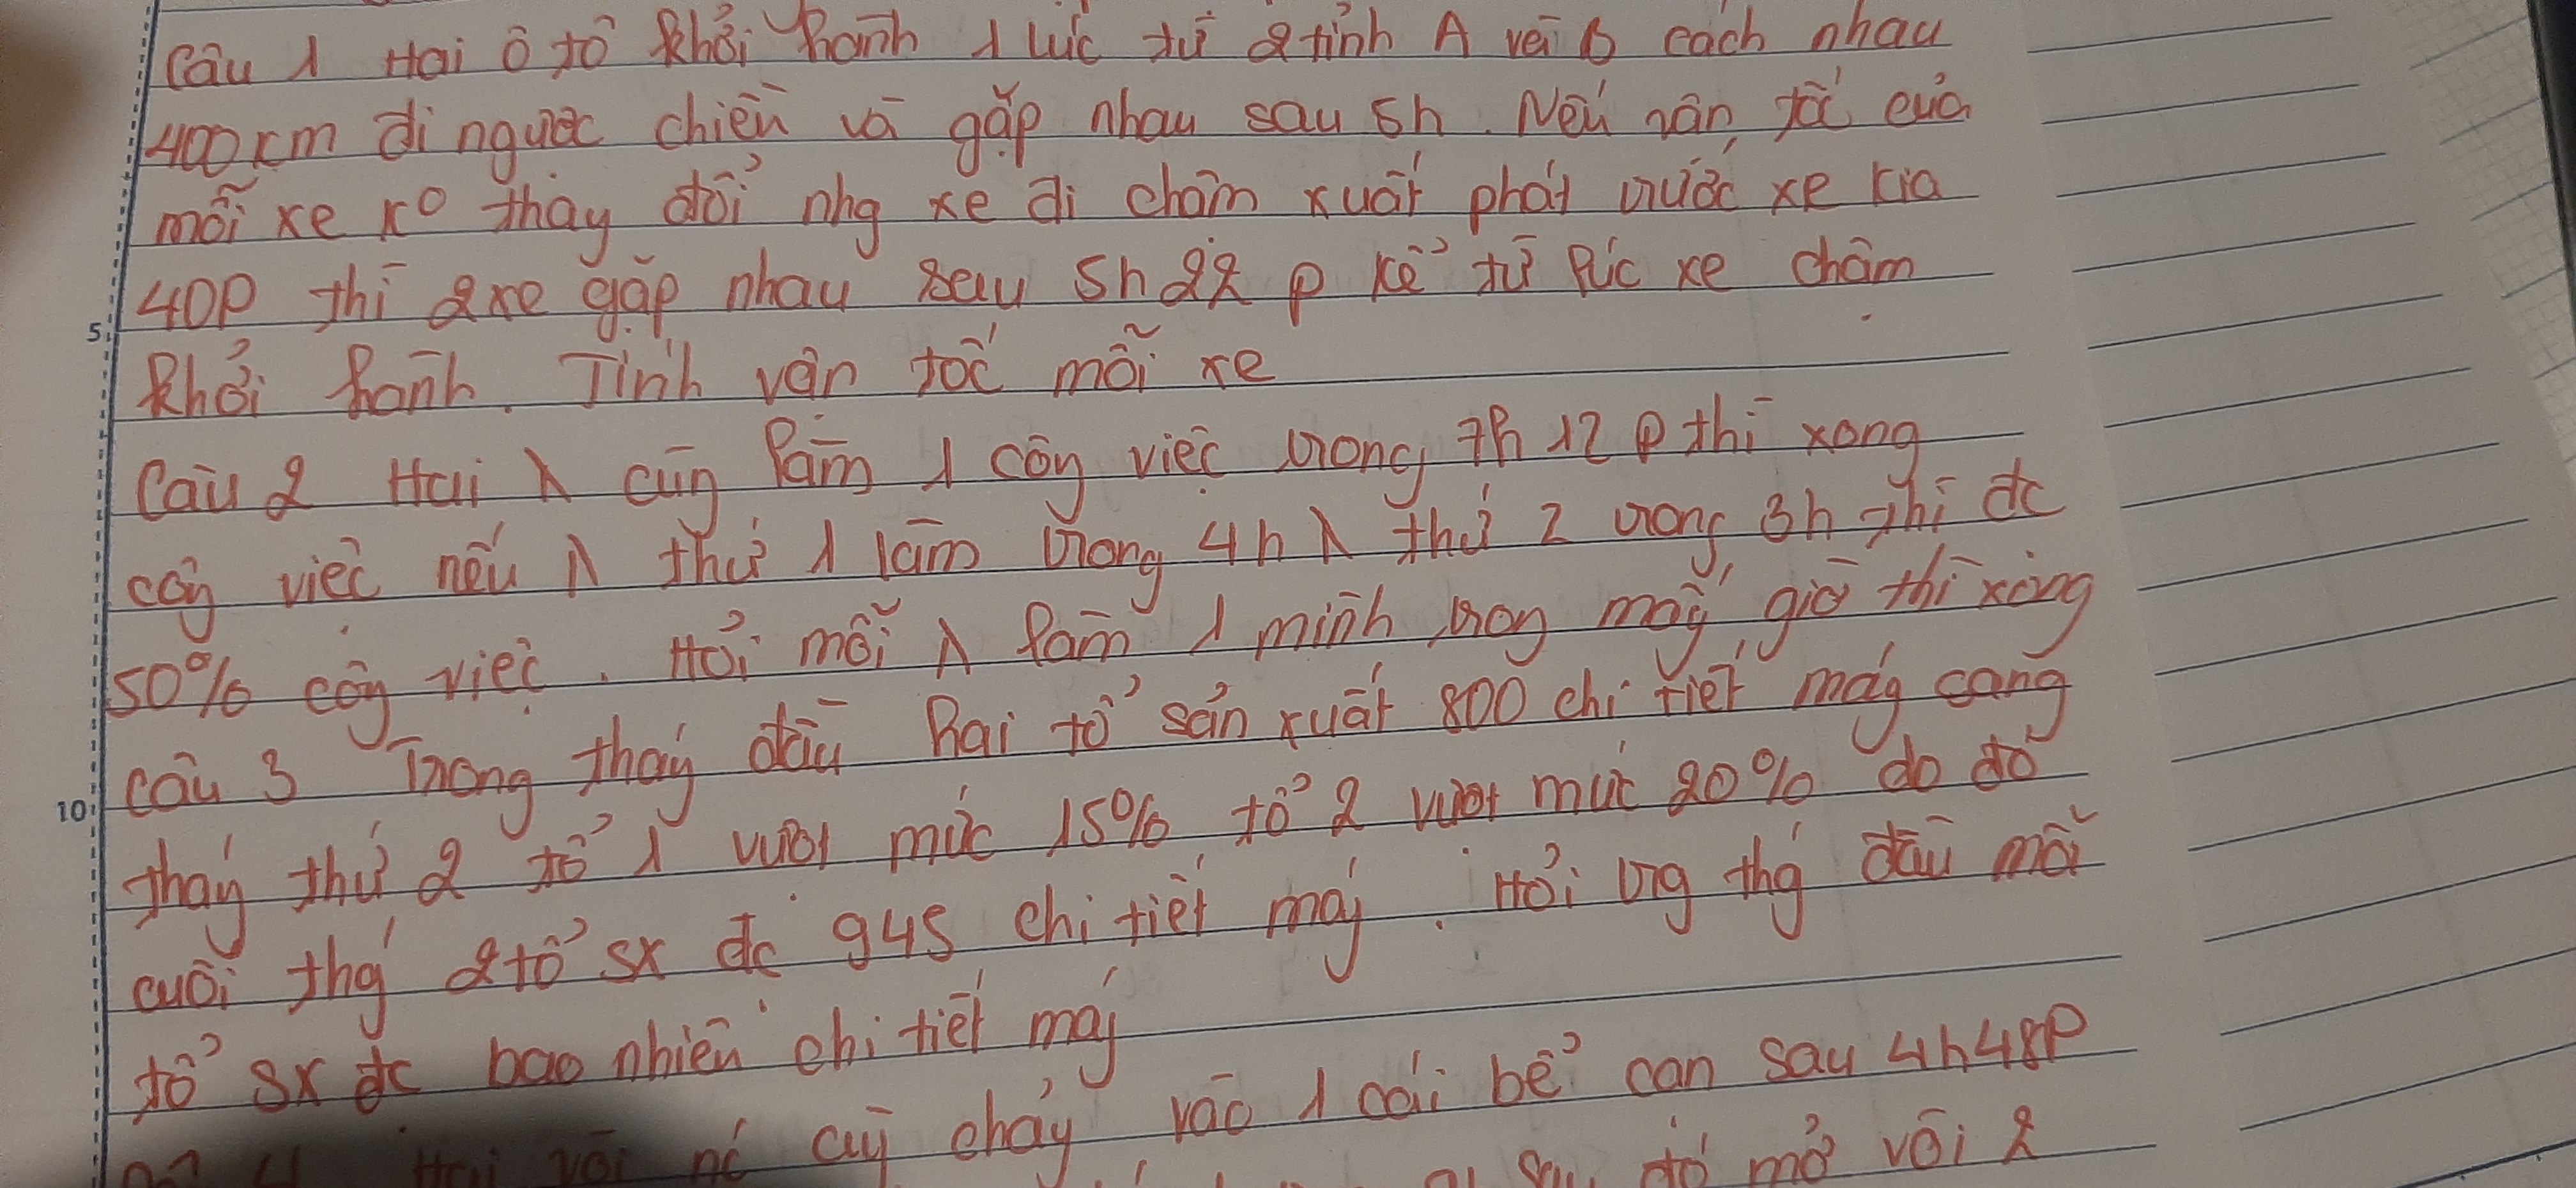 Câu 1 Hai ô tô khởi hành 1 lúc từ 2 tỉnh A và B cách nhau
400km đi ngược chiều và gặp nhau sau 5h. Nếu vận tốc của
mỗi xe k° thay đổi nhg xe đi chậm xuất phát trước xe kia
40P thì 2 xe gặp nhau sau 5h22p kể từ lúc xe chậm
khởi hành. Tính vận tốc mỗi xe
Câu 2 Hai λ cùng làm 1 công việc trong 7h 12p thì xong
công việc nếu λ thứ 1 làm trong 4h λ thứ 2 trong 3h thì đc
50% công việc. Hỏi mỗi λ làm 1 mình trong mấy giờ thì xong
câu 3 Trong tháng đầu hai tổ sản xuất 800 chi tiết máy sang
tháng thứ 2 tổ 1 vượt mức 15% tổ 2 vượt mức 20% do đó
cuối thg 2 tổ sx đc 945 chi tiết máy. Hỏi trg thg đầu mỗi
tổ sx đc bao nhiêu chi tiết máy
4 Hai vòi nc cùg chảy vào 1 cái bể cạn sau 4h48P
sau đó mở vòi 2